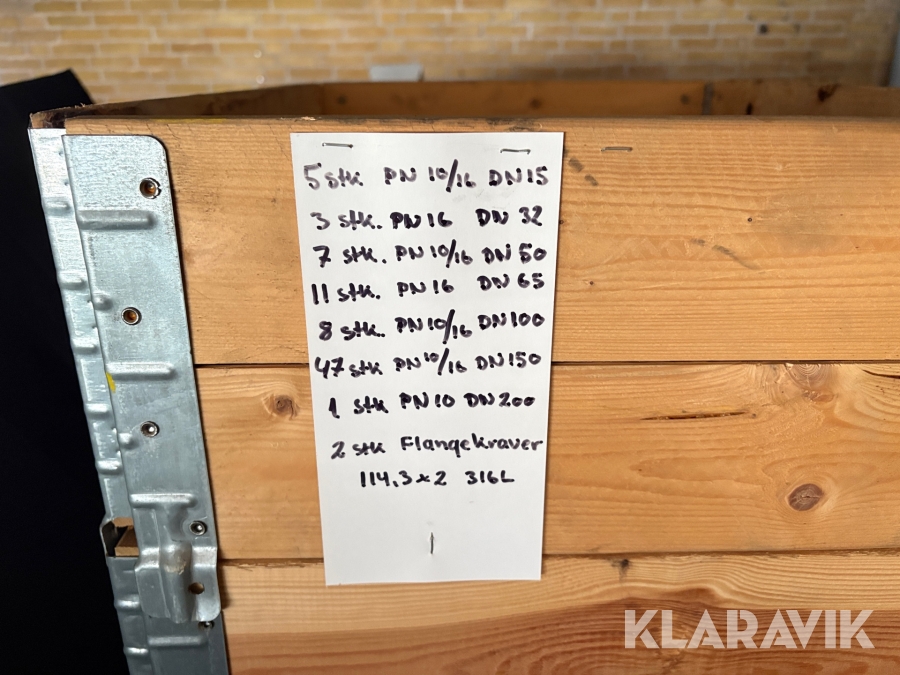 5 stk PN 10/16 DN 15
3 stk. PN 16 DN 32
7 stk. PN 10/16 DN 50
11 stk. PN 16 DN 65
8 stk. PN 10/16 DN 100
47 stk PN 10/16 DN 150
1 stk PN 10 DN 200
2 stk Flangekraver
114.3 x 2 316L
KLARAVIK